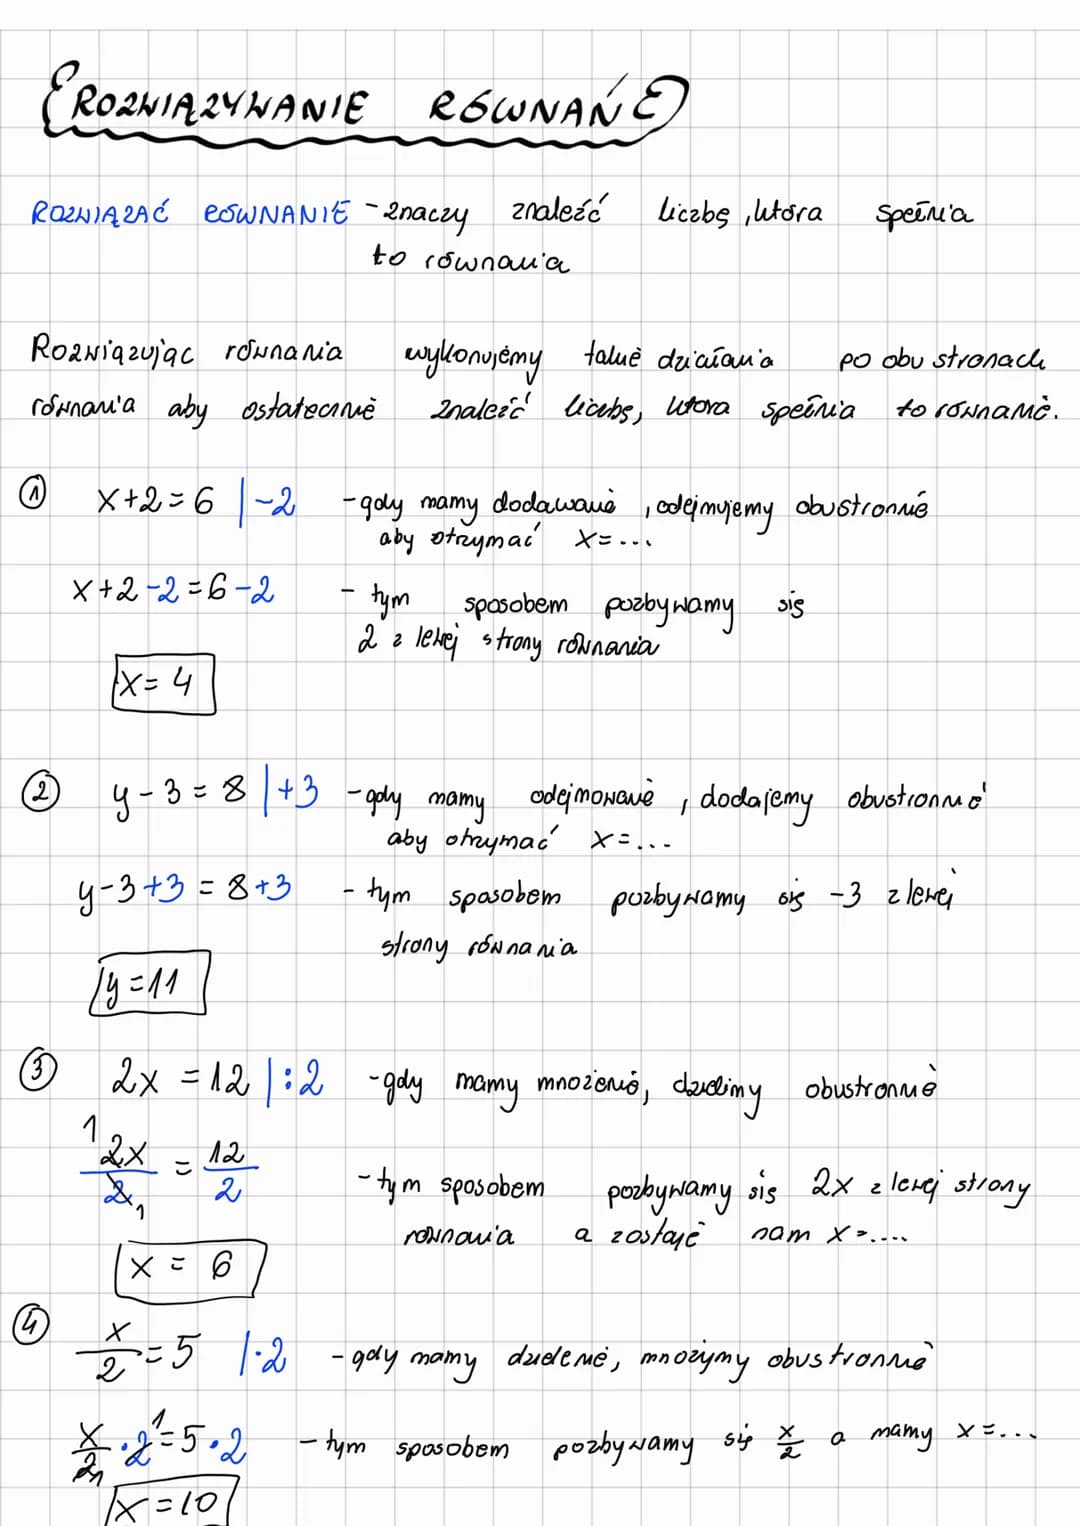 ROZWIĄZYWANIE RÓWNAŃ
ROZWIĄZAĆ RÓWNANIE - znaczy znaleźć liczbę, która spełnia
to równania
Rozwiązując równania wykonujemy takie działania po obu stronach
równania aby ostatecznie znaleźć liczbę, która spełnia to równanie.
① x+2=6 |-2 - gdy mamy dodawanie, odejmujemy obustronnie
aby otrzymać x=...
x+2-2=6-2 - tym sposobem pozbywamy się
2 z lewej strony równania
x=4
② y-3=8 |+3 - gdy mamy odejmowanie, dodajemy obustronnie
aby otrzymać x=...
y-3+3=8+3 - tym sposobem pozbywamy się -3 z lewej
strony równania
y=11
③ 2x=12 |:2 - gdy mamy mnożenie, dzielimy obustronnie
1
2x/2 = 12/2 - tym sposobem pozbywamy się 2x z lewej strony
1 równania a zostaje nam x=....
x=6
④ x/2=5 |·2 - gdy mamy dzielenie, mnożymy obustronnie
x/2₁·2¹=5·2 - tym sposobem pozbywamy się x/2 a mamy x=...
x=10